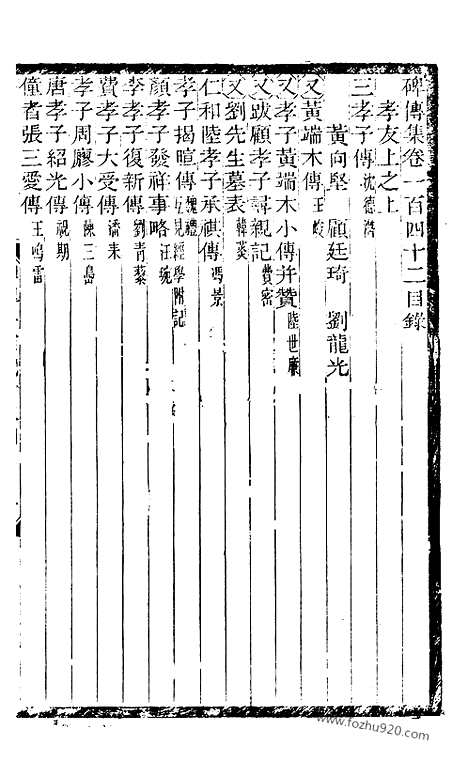 碑傳集卷一百四十二目錄
孝友上之上
三孝子傳 沈德潛
黃向堅 顧廷琦 劉龍光
又黃端木傳 王峻
又孝子黃端木小傳并贊 陸世廉
又跋顧孝子尋親記 費密
又劉先生墓表 韓菼
仁和陸孝子承祺傳 馮景
孝子揭暄傳 魏禮 互見經學附記
顏孝子發祥事略 汪琬
李孝子復新傳 劉青藜
費孝子大受傳 潘耒
孝子周膠小傳 陳三島
唐孝子紹光傳 祝期
僮者張三愛傳 王鳴雷
www.fozhu920.com